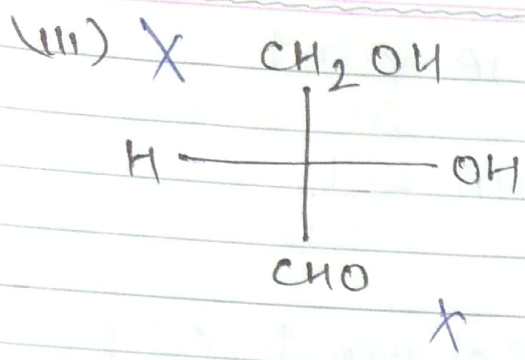 (III) X CH2OH
H OH
CHO
X